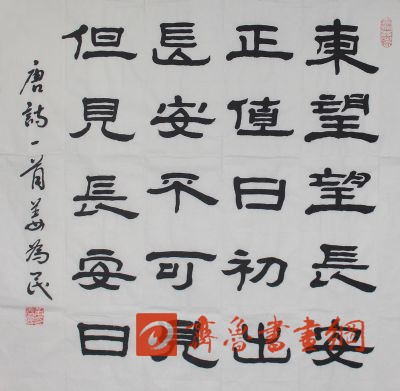 東望望長安
正值日初出
長安不可見
但見長安日
唐詩一首姜為民
齊魯書畫網